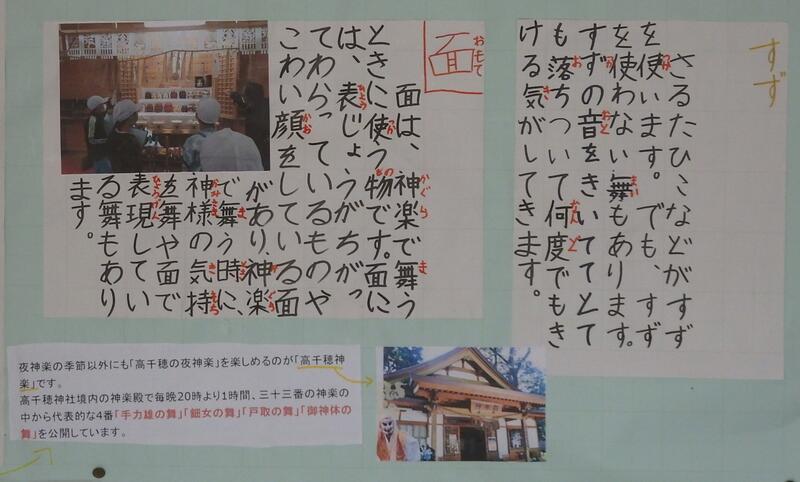 すず
さるたひこなどがすず
を使います。でも、すず
を使わない舞もあります。
すずの音をきいててとて
も落ちついて何度でもき
ける気がしてきます。
おもて
面
面は、神楽で舞う
ときに使う物です。面に
は、表じょうがちがっ
てわらっているものや
こわい顔をしている面
があり、神楽
で舞う時に、
神様の気持
を舞や面で
表現してい
る舞もあり
ます。
夜神楽の季節以外にも「高千穂の夜神楽」を楽しめるのが「高千穂神
楽」です。
高千穂神社境内の神楽殿で毎晩20時より1時間、三十三番の神楽の
中から代表的な4番「手力雄の舞」「鈿女の舞」「戸取の舞」「御神体の
舞」を公開しています。
神楽殿